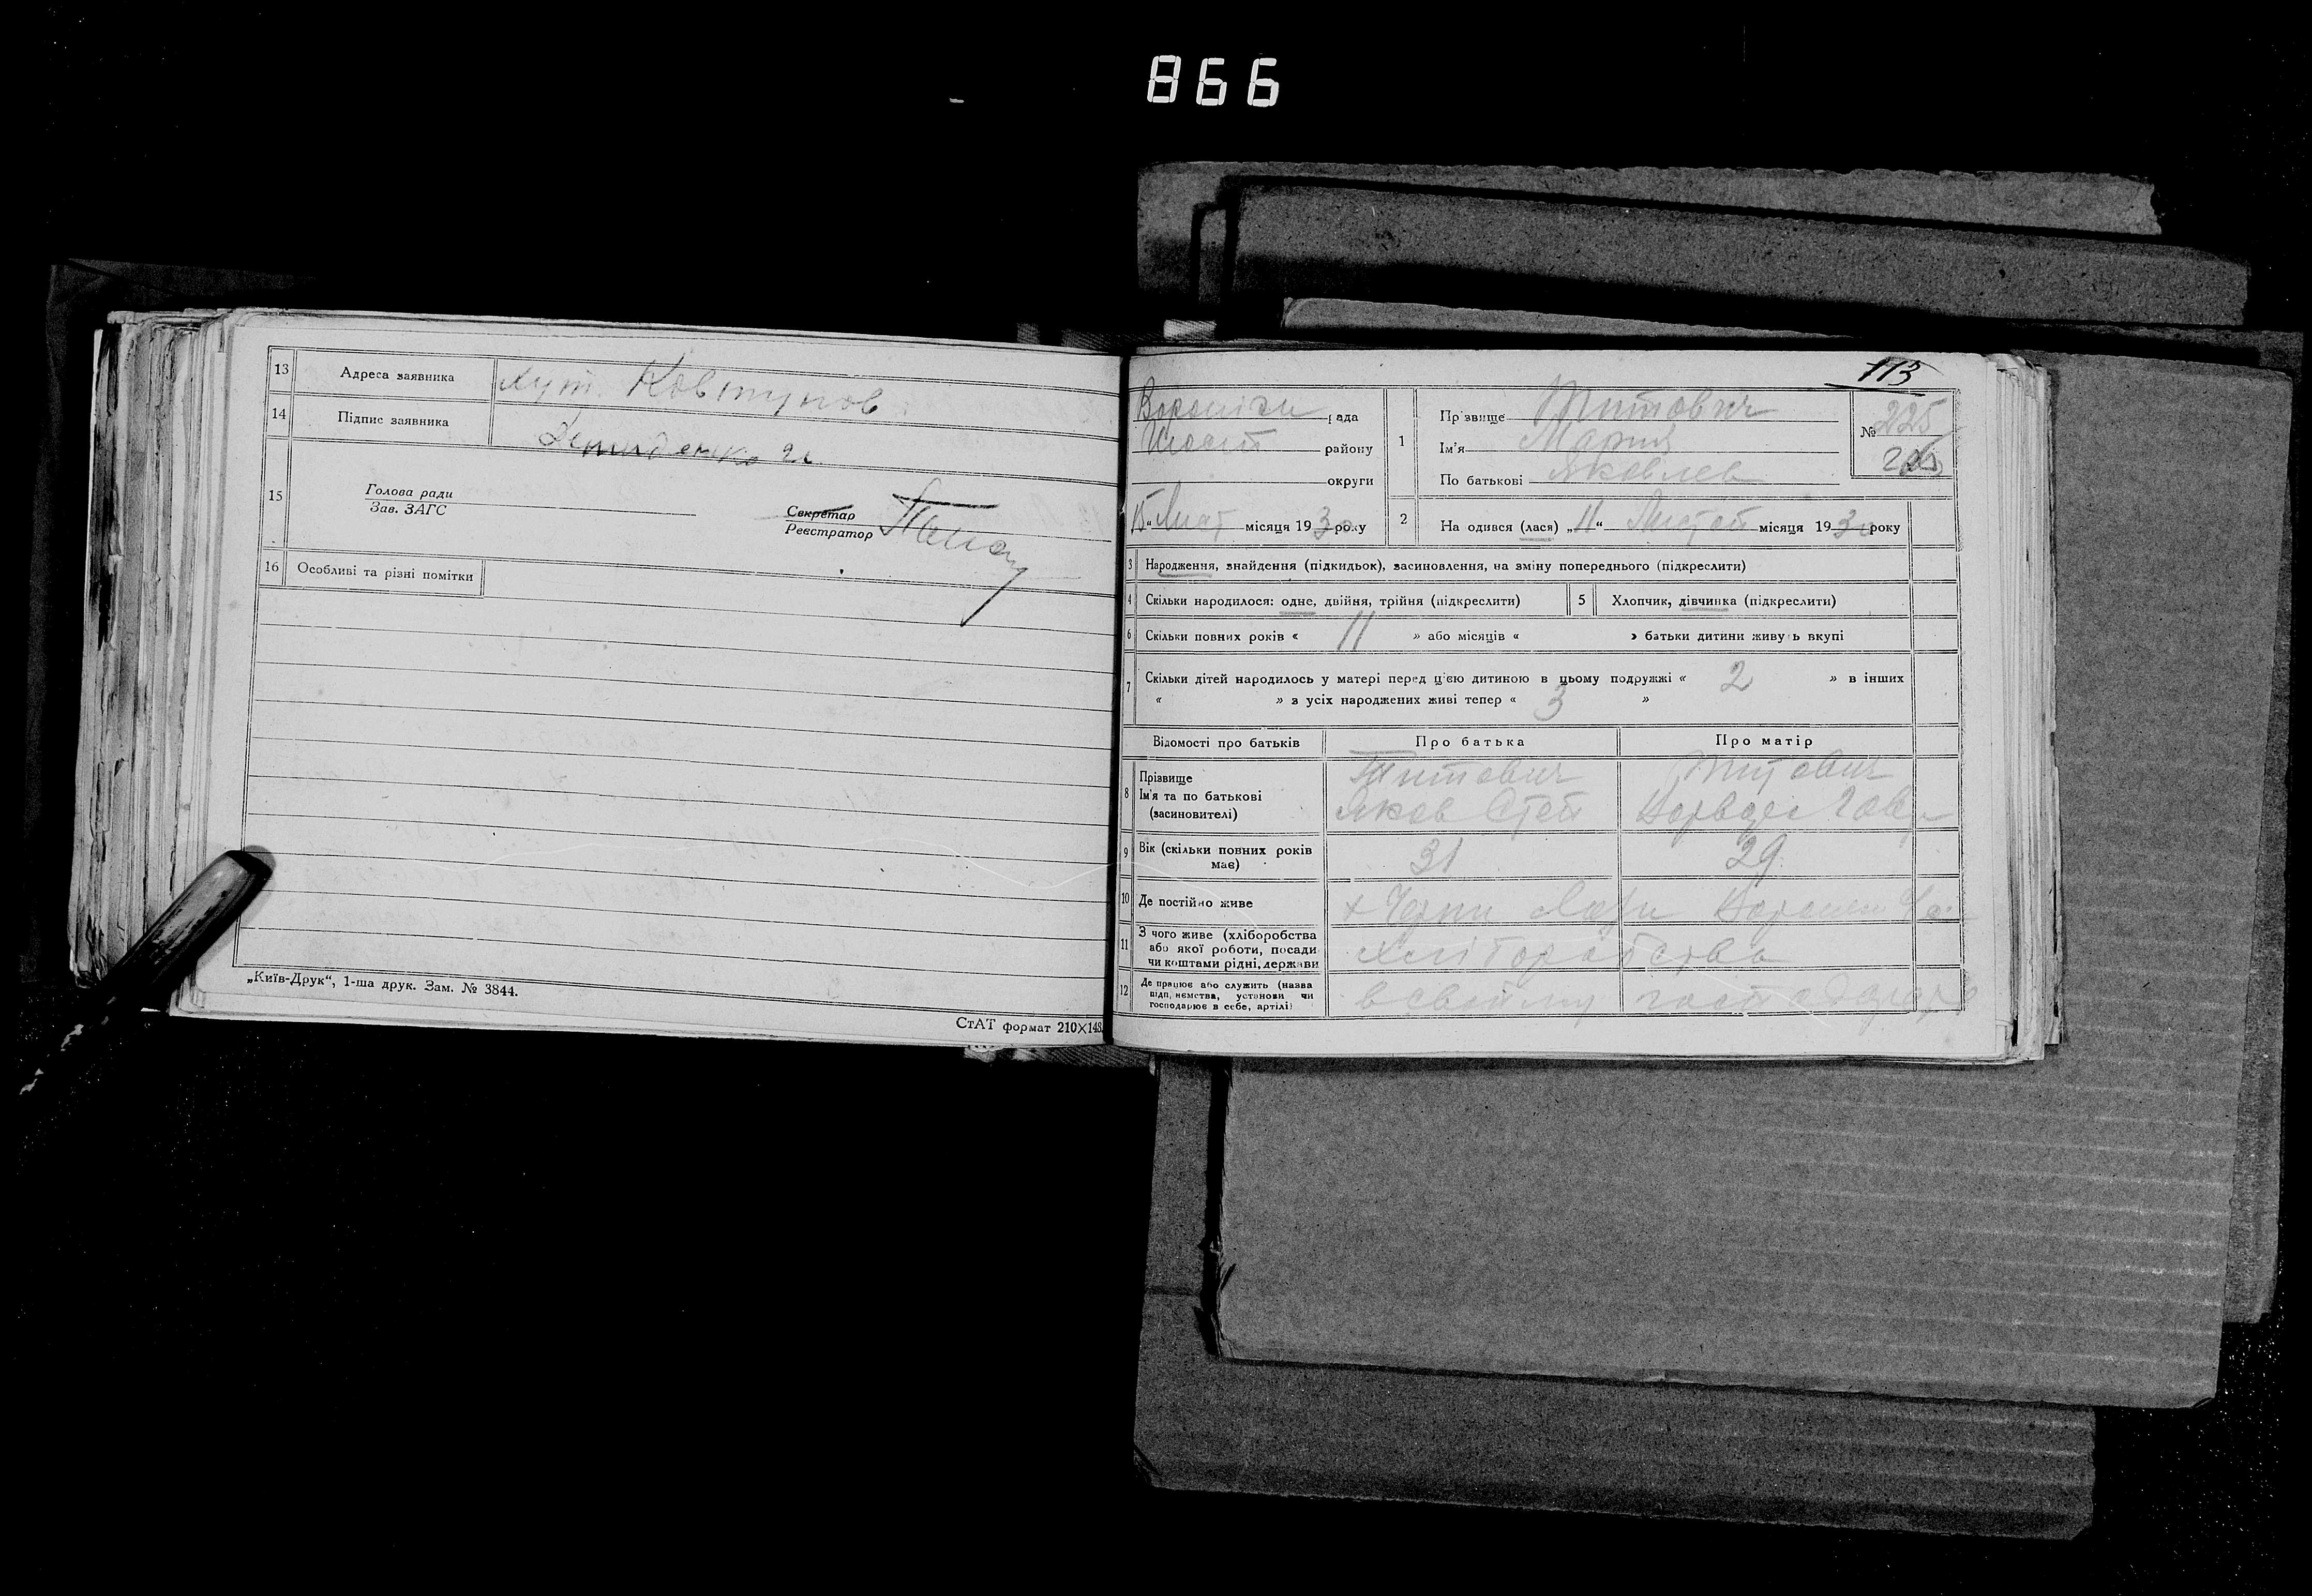 866
13 Адреса заявника хут. Ковтунов
14 Підпис заявника
15 Голова ради
Зав. ЗАГС
Секретар
Реєстратор
16 Особливі та різні помітки
„Київ-Друк“, 1-ша друк. Зам. № 3844.
СтАТ формат 210×148.
113
рада
району
округи
15 “ Лист місяця 1930 року
1 Прізвище Титович
Ім'я Мария
По батькові Яковлев
№ 225
2 На одився (лася) „ 11 “ Листоп місяця 1930 року
3 Народження, знайдення (підкидьок), засиновлення, на зміну попереднього (підкреслити)
4 Скільки народилося: одне, двійня, трійня (підкреслити) 5 Хлопчик, дівчинка (підкреслити)
6 Скільки повних років « 11 » або місяців « » батьки дитини живуть вкупі
7 Скільки дітей народилось у матері перед цією дитиною в цьому подружжі « 2 » в інших
« » з усіх народжених живі тепер « 3 »
Відомості про батьків Про батька Про матір
8 Прізвище Титович Титович
Ім'я та по батькові Яков Степ
(засиновителі)
9 Вік (скільки повних років має) 31 29
10 Де постійно живе
11 З чого живе (хліборобства
або якої роботи, посади
чи коштами рідні, держави
хліборобства
12 Де працює або служить (назва
підп,ніємства, установи чи
господарює в себе, артілі)